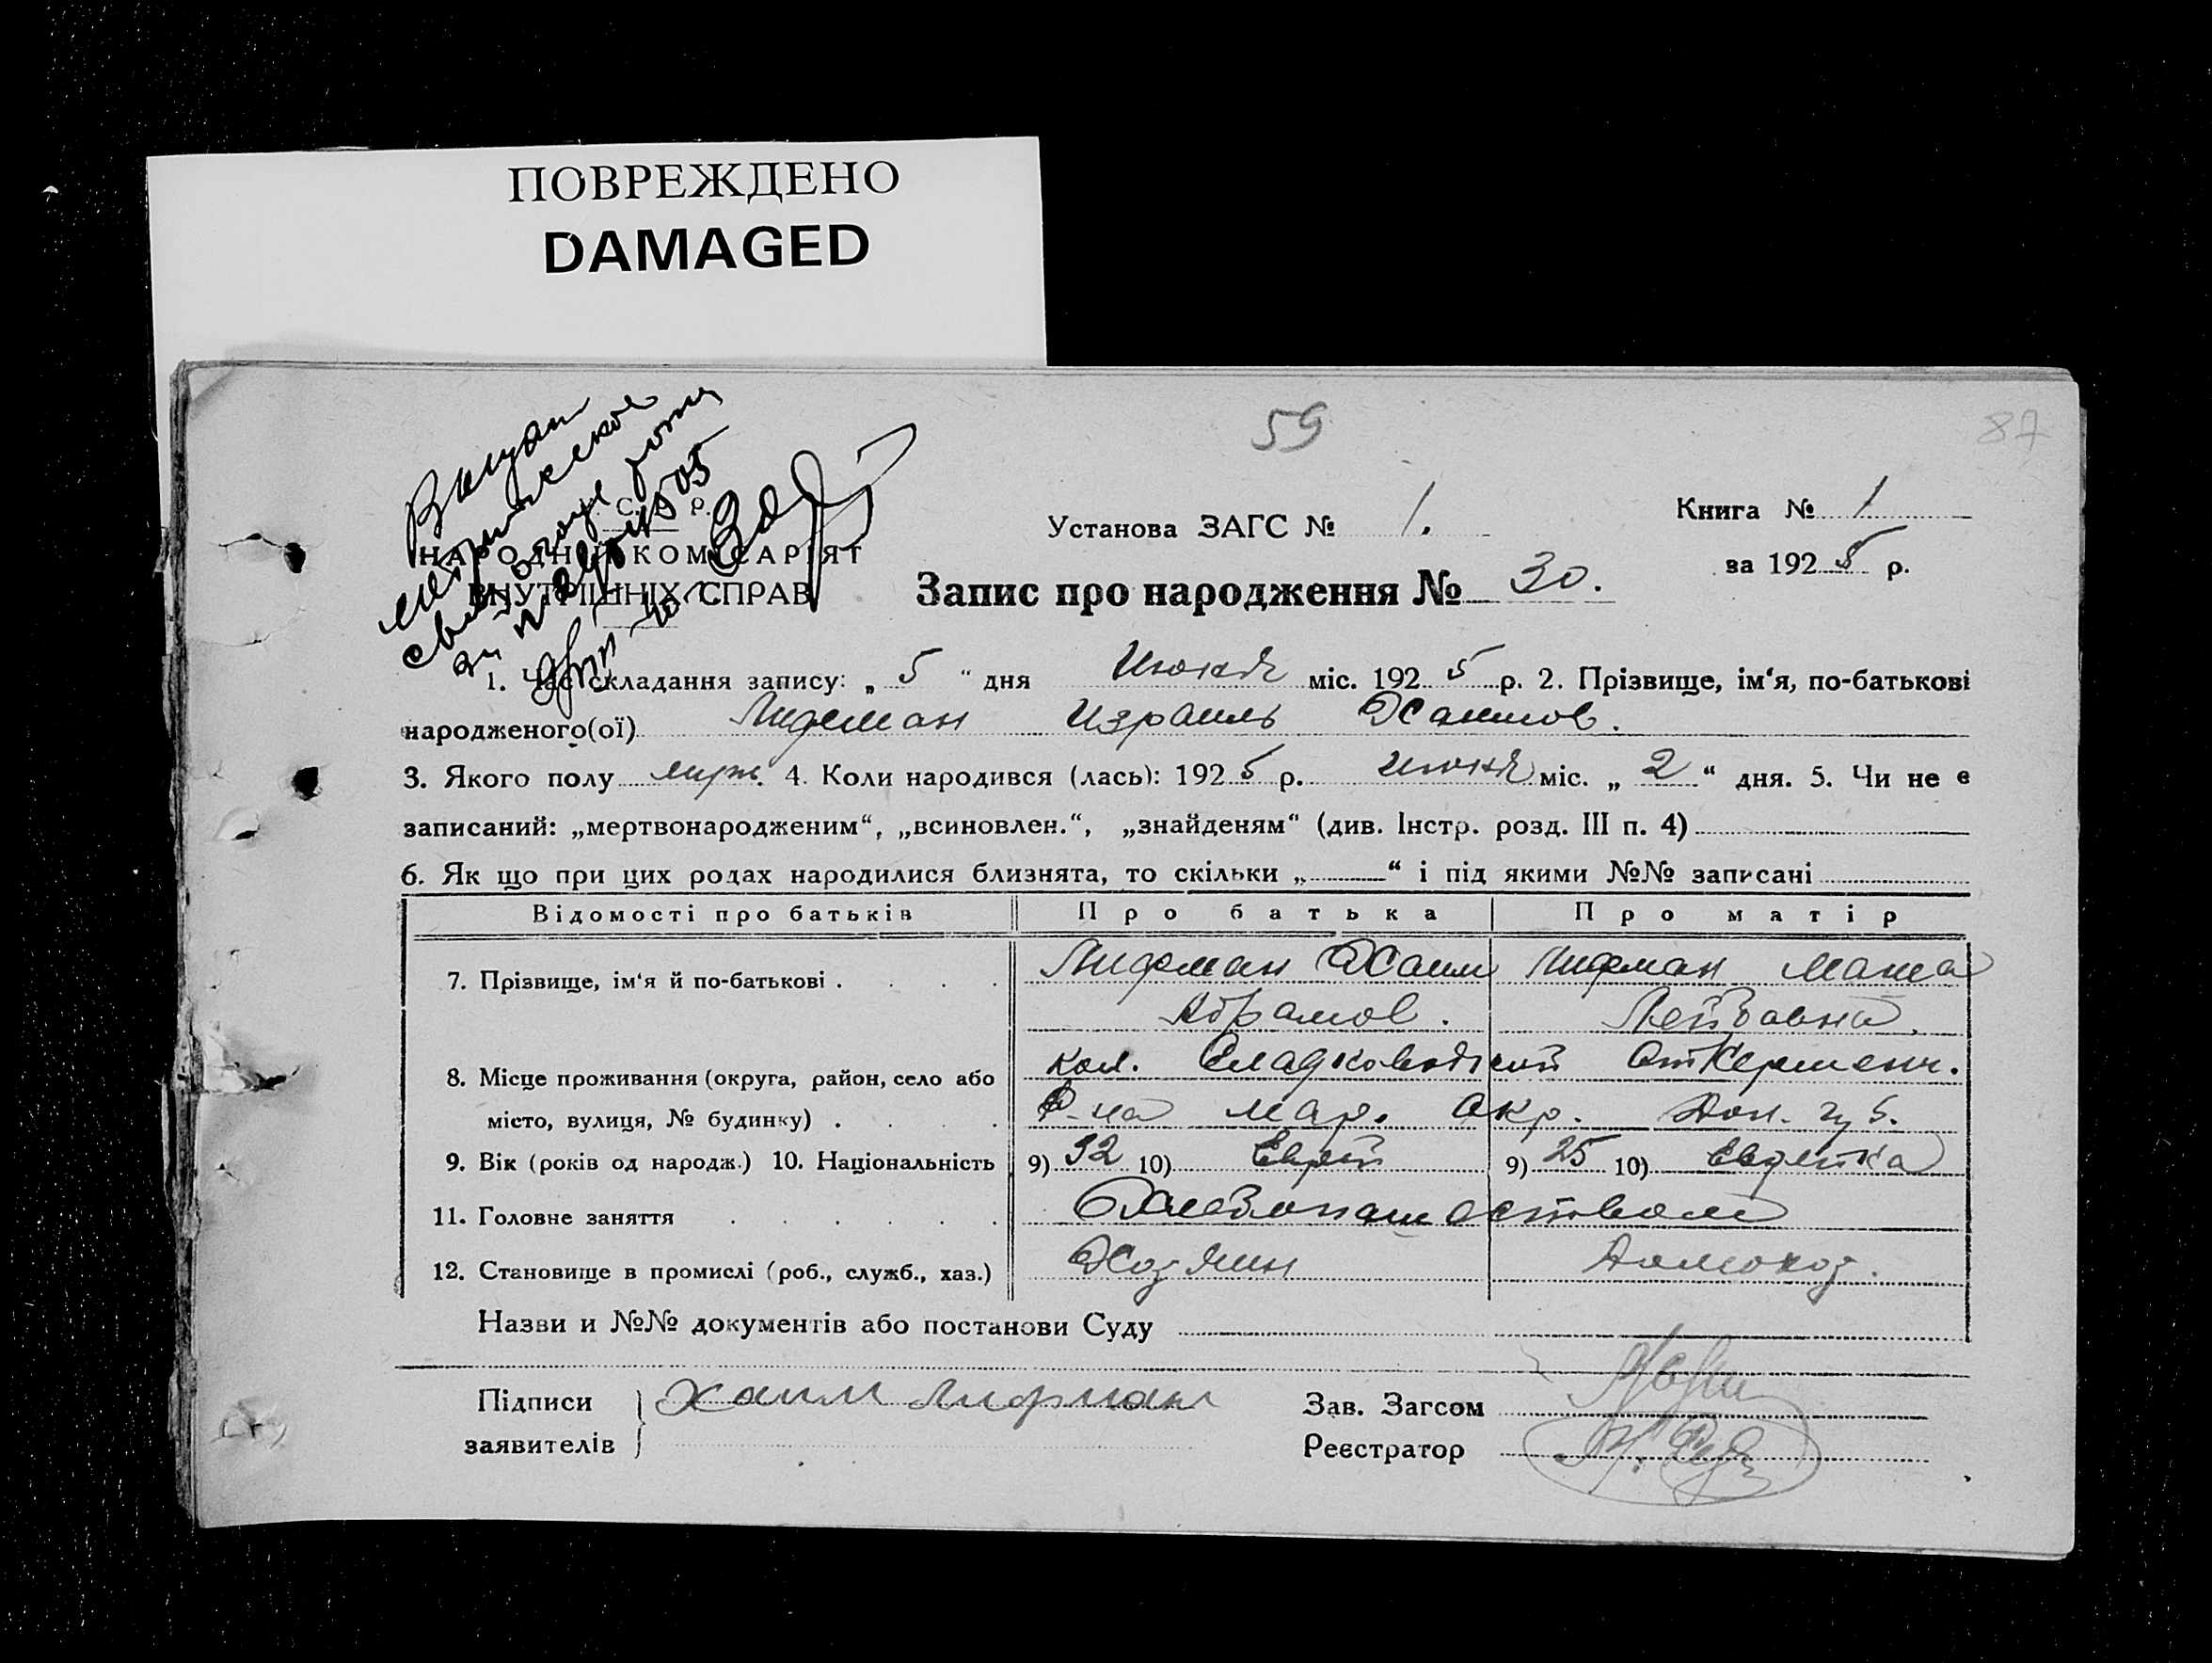 ПОВРЕЖДЕНО
DAMAGED
59
87
Выдан
С. Р.
НАРОДНИЙ КОМІСАРІЯТ
ВНУТРІШНІХ СПРАВ
Установа ЗАГС № 1.
Книга № 1
за 1925 р.
Запис про народження № 30.
1. Час складання запису: „ 5 “ дня Июня міс. 1925 р. 2. Прізвище, ім‘я, по-батькові
народженого(ої) Лифман Израиль Хаимов.
3. Якого полу муж. 4. Коли народився (лась): 1925 р. июня міс. „ 2 “ дня. 5. Чи не є
записаний: „мертвонародженим“, „всиновлен.“, „знайденям“ (див. Інстр. розд. III п. 4)
6. Як що при цих родах народилися близнята, то скільки „ “ і під якими №№ записані
Відомості про батьків Про батька Про матір
7. Прізвище, ім‘я й по-батькові . Лифман Хаим Лифман Маша
Абрамов. Лейбовна.
8. Місце проживання (округа, район, село або кол. Сладководный Старкерменч.
місто, вулиця, № будинку) . Р-на Мар. Окр. Дон. губ.
9. Вік (років од народж.) 10. Національність 9) 32 10) Еврей 9) 25 10) Еврейка
11. Головне заняття Хлебопашеством
12. Становище в промислі (роб., служб., хаз.) Хозяин Домохоз.
Назви и №№ документів або постанови Суду
Підписи Хаим Лифман Зав. Загсом
заявителів Реєстратор